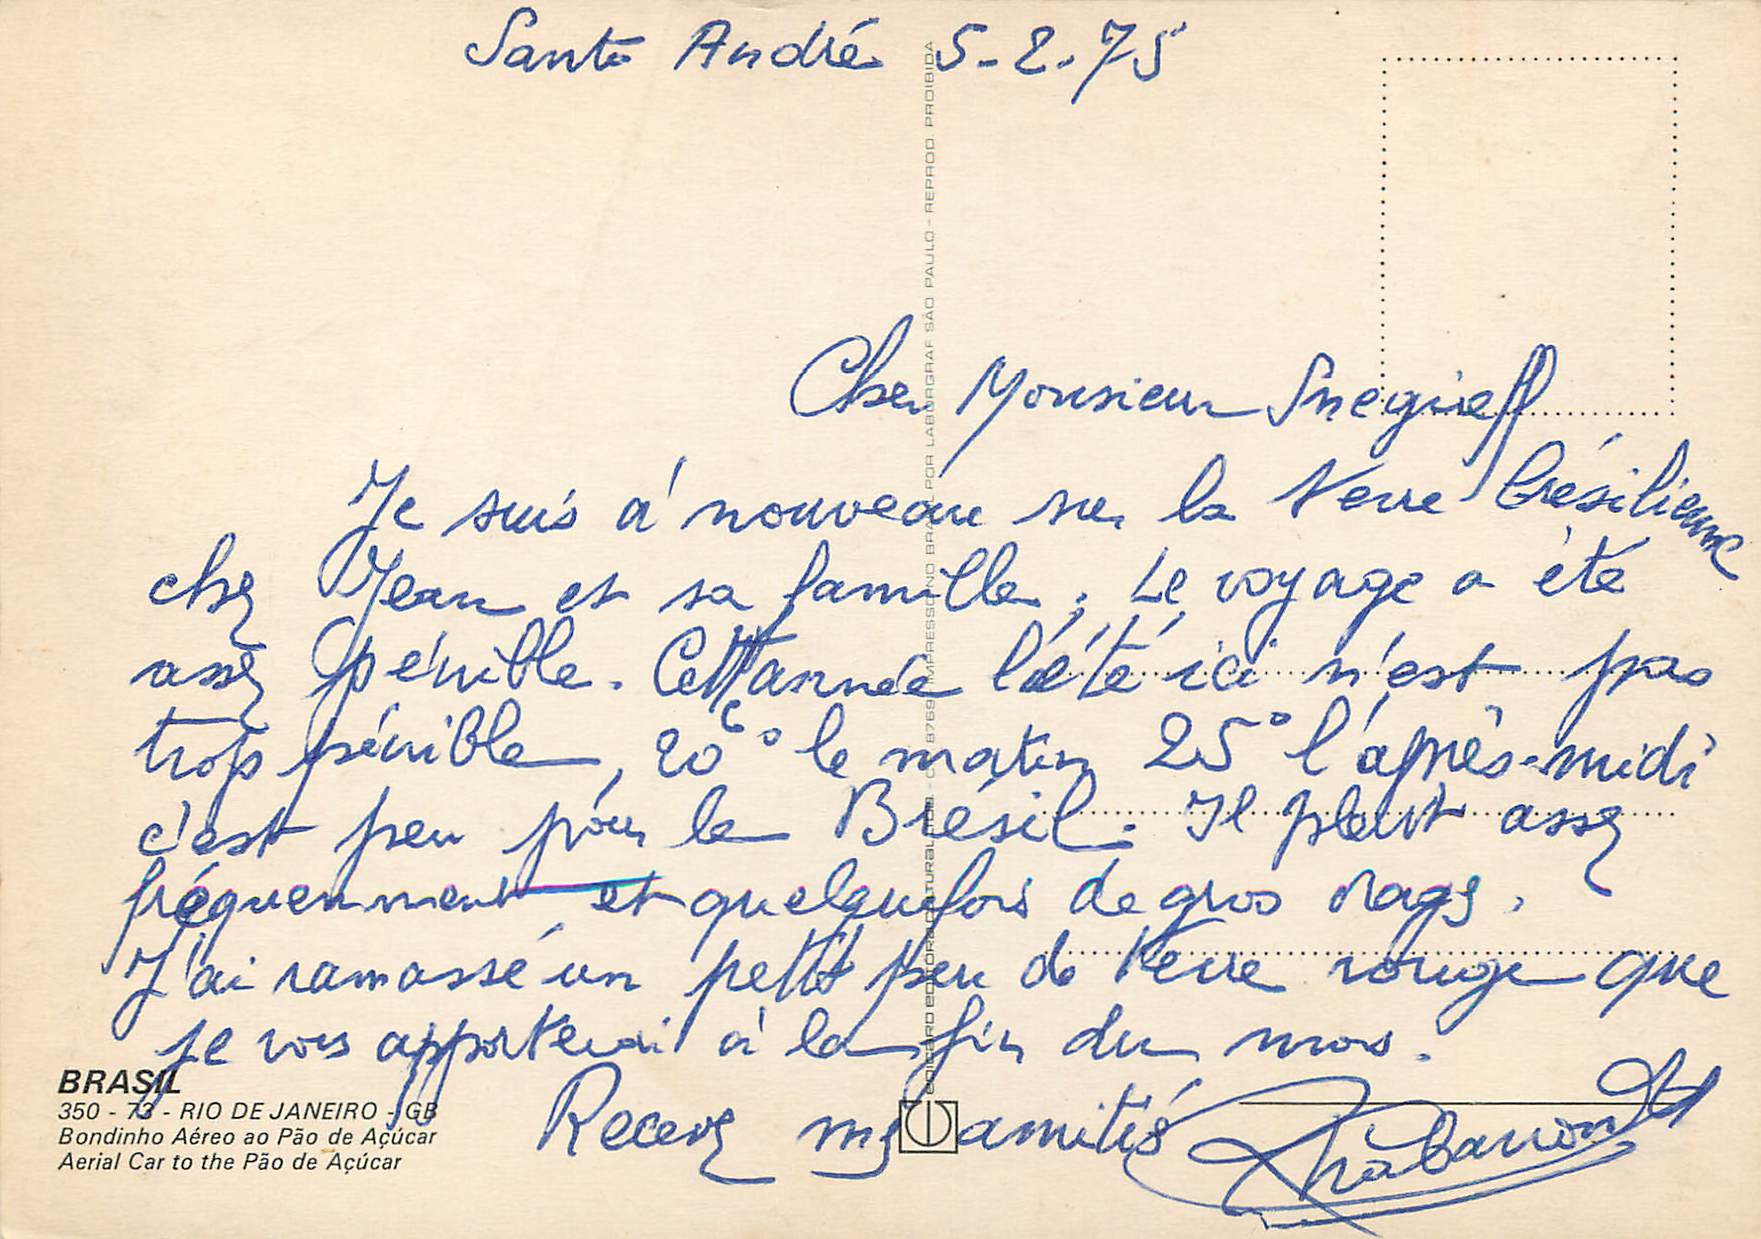 Santo André 5-2-75
Cher Monsieur Snegireff
Je suis à nouveau sur la terre brésilienne
chez Jean et sa famille. Le voyage a été
assez pénible. Cette année l'été ici n'est pas
trop pénible, 20° le matin 25° l'après-midi
c'est peu pour le Brésil. Il pleut assez
fréquemment et quelquefois de gros orages.
J'ai ramassé un petit peu de terre rouge que
je vous apporterai à la fin du mois.
Recevez mes amitiés
BRASIL
350 - 73 - RIO DE JANEIRO - GB
Bondinho Aéreo ao Pão de Açúcar
Aerial Car to the Pão de Açúcar
IMPRESSO NO BRASIL POR LABORGRAF SÃO PAULO - REPROD PROIBIDA